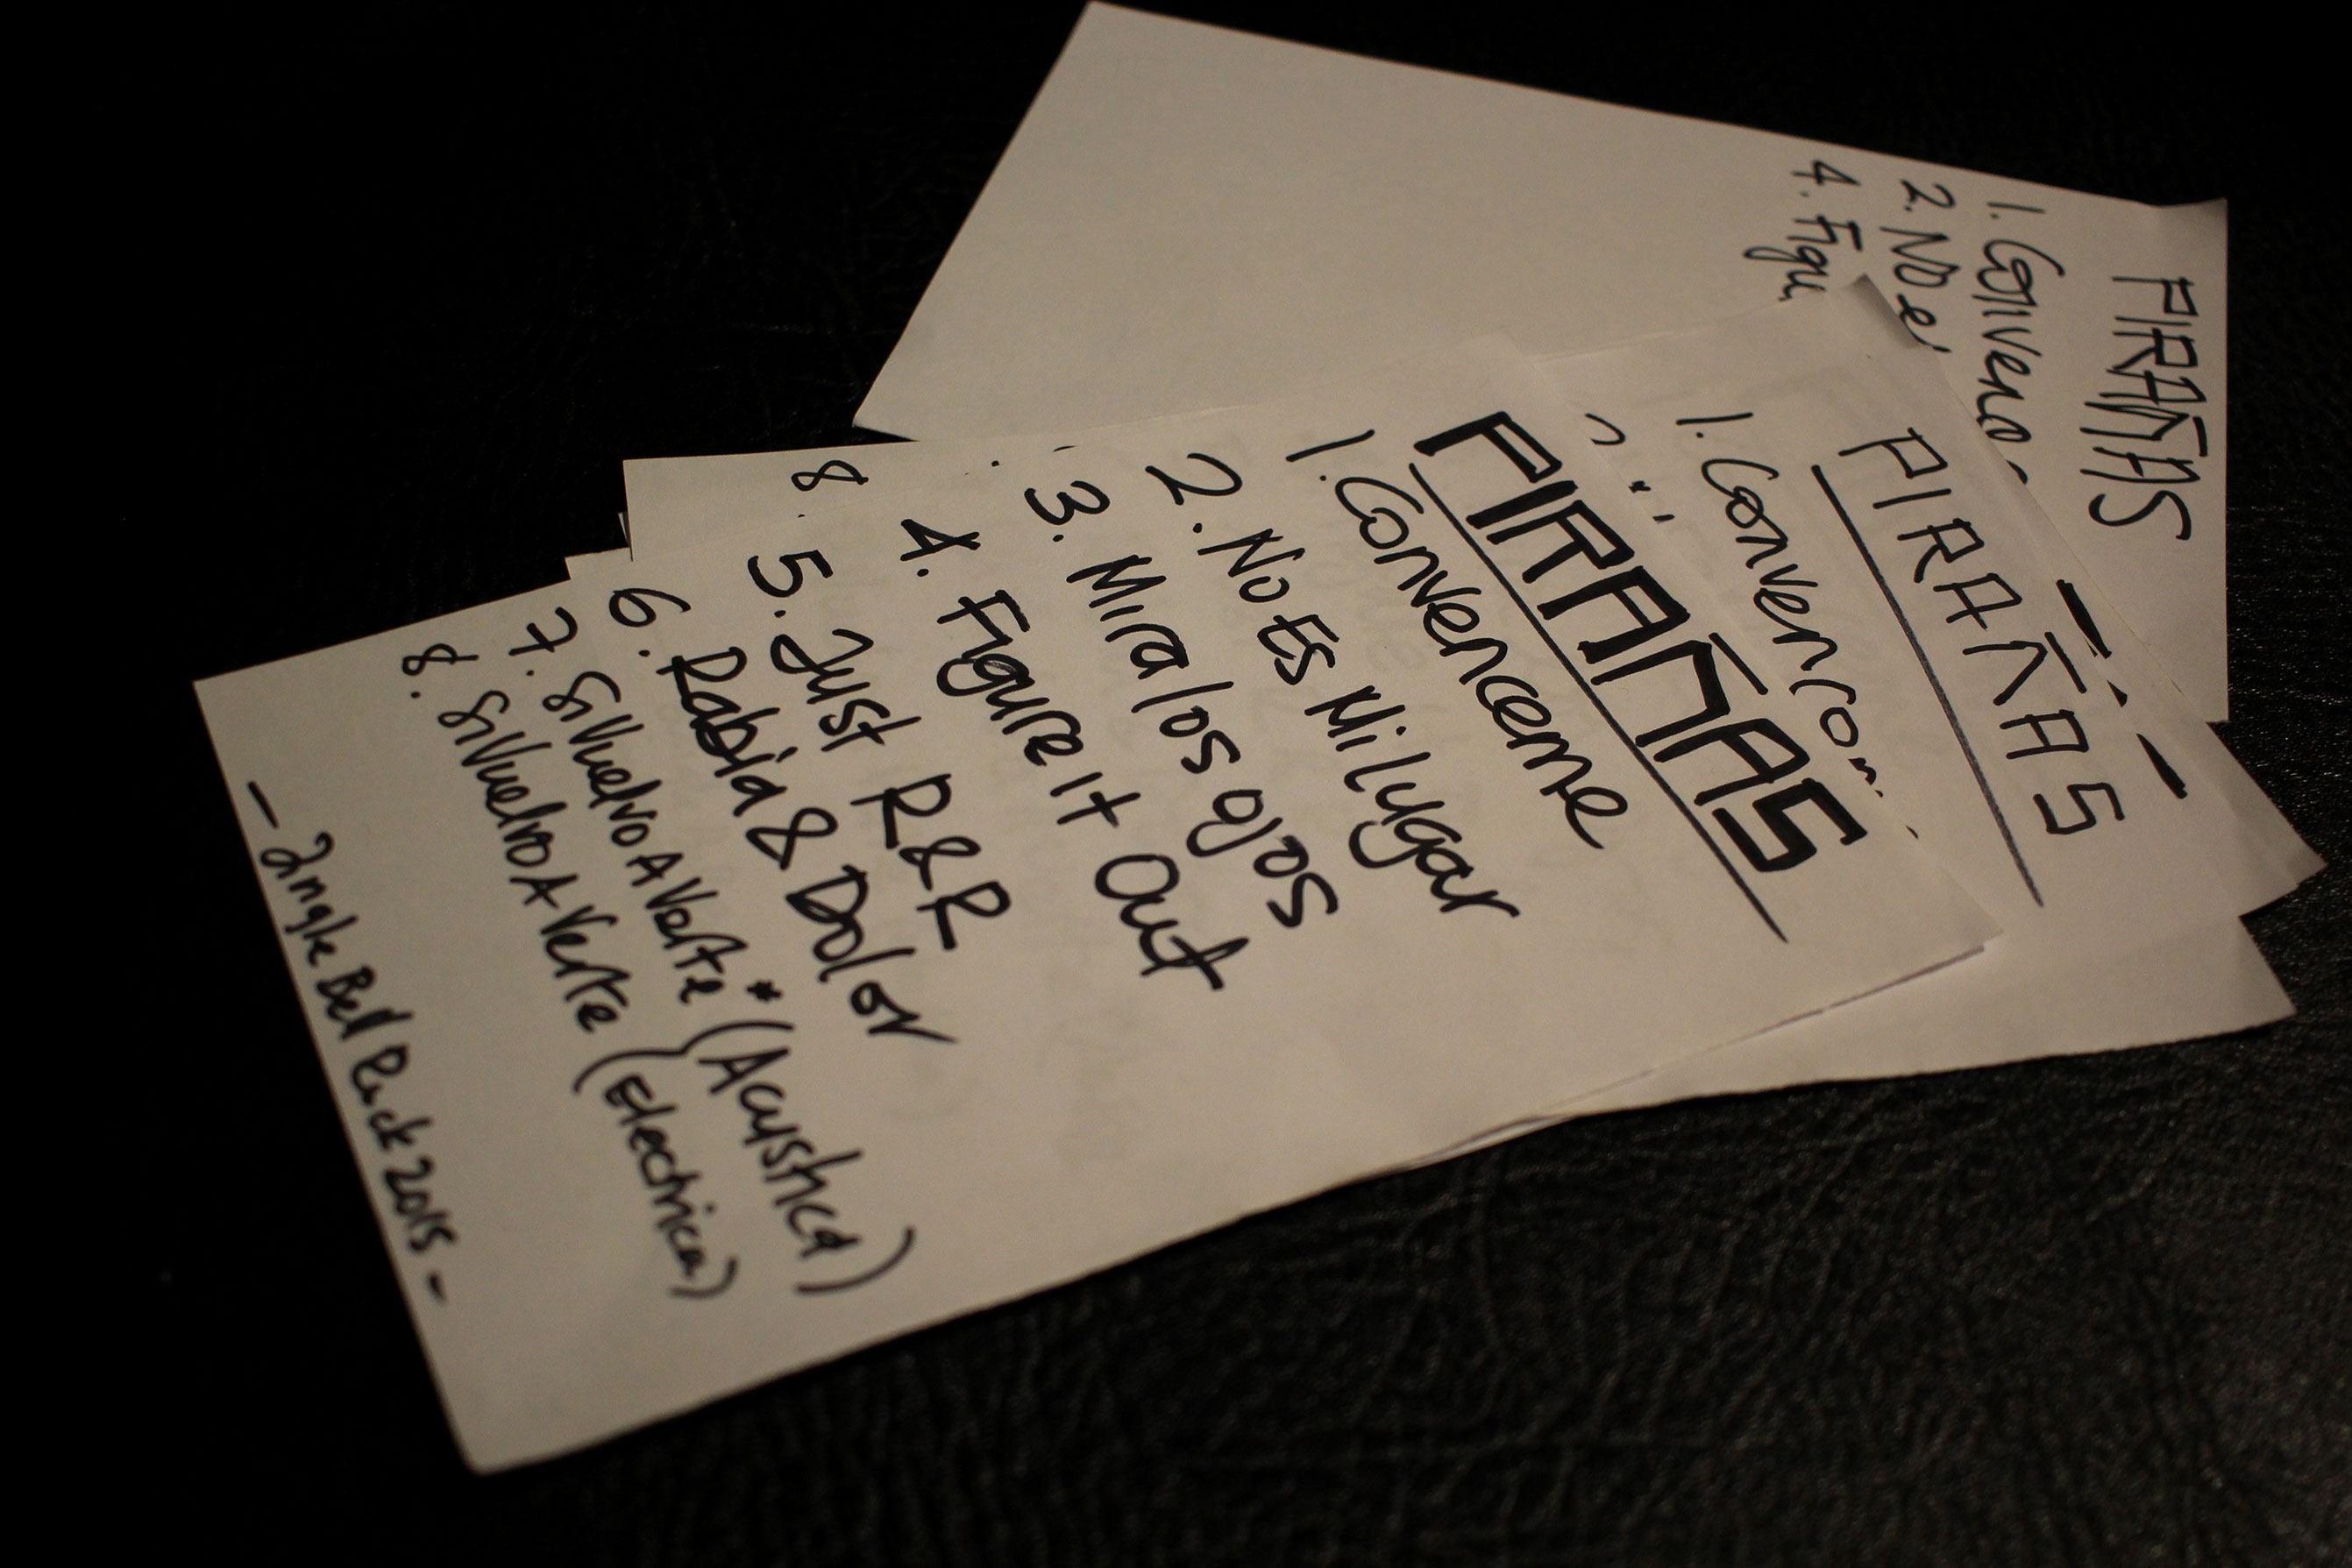 PIRAÑAS
1. Convenceme
2. No Es Mi lugar
3. Mira los ojos
4. Figure It Out
5. Just R&R
6. Rabia & Dolor
7. Si Vuelvo A Verte * (Acustica)
8. Si Vuelvo A Verte (Electrica)
- Jingle Bell Rock 2015 -
8.
PIRAÑAS
1. Convenc
PIRAÑAS
1. Convence
2. No e
4. Figu